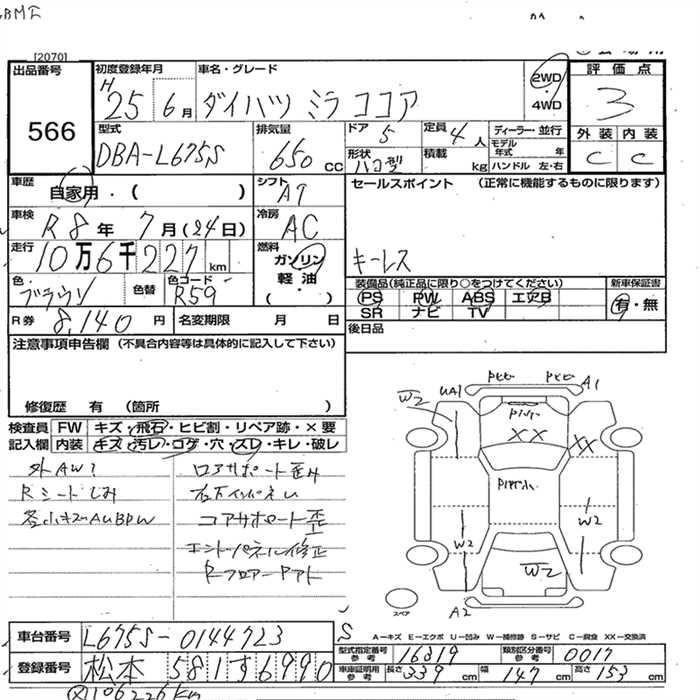 [2070]
出品番号 566
初度登録年月 H25年6月
車名・グレード ダイハツ ミラ ココア
2WD・4WD
評価点 3
外装 C 内装 C
型式 DBA-L675S
排気量 650 cc
ドア 5
形状 ハコ型
定員 4人
積載 kg
ディーラー・並行
モデル年式 年
ハンドル 左・右
車歴 自家用・( )
シフト AT
セールスポイント (正常に機能するものに限ります)
キーレス
車検 R8年7月(24日)
冷房 AC
走行 10万6千227km
燃料 ガソリン・軽油・( )
色 ブラウン 色替 色コード R59
装備品(純正品に限り○をつけてください)
PS PW ABS エアB
SR ナビ TV
新車保証書 有・無
R券 8,140円 名変期限 月 日
後日品
注意事項申告欄 (不具合内容等は具体的に記入して下さい)
修復歴 有 (箇所 )
検査員記入欄 FW キズ・飛石・ヒビ割・リペア跡・×要
内装 キズ・汚レ・コゲ・穴・スレ・キレ・破レ
外AW
Rシートしみ
各小キズAUBPW
コアサポート歪
エンドパネル修正
Rフロアーアト
W2 UA1 A1
XX XX
W2 W2
W2
A2
スペア
S
A―キズ E―エクボ U―凹み W―補修跡 S―サビ C―腐食 XX―交換済
車台番号 L675S-0144723
型式指定番号 参考 16319 類別区分番号 参考 0017
登録番号 松本 581す6990
車庫証明用 参考 長さ 339 幅 147 高さ 153 cm
106226km